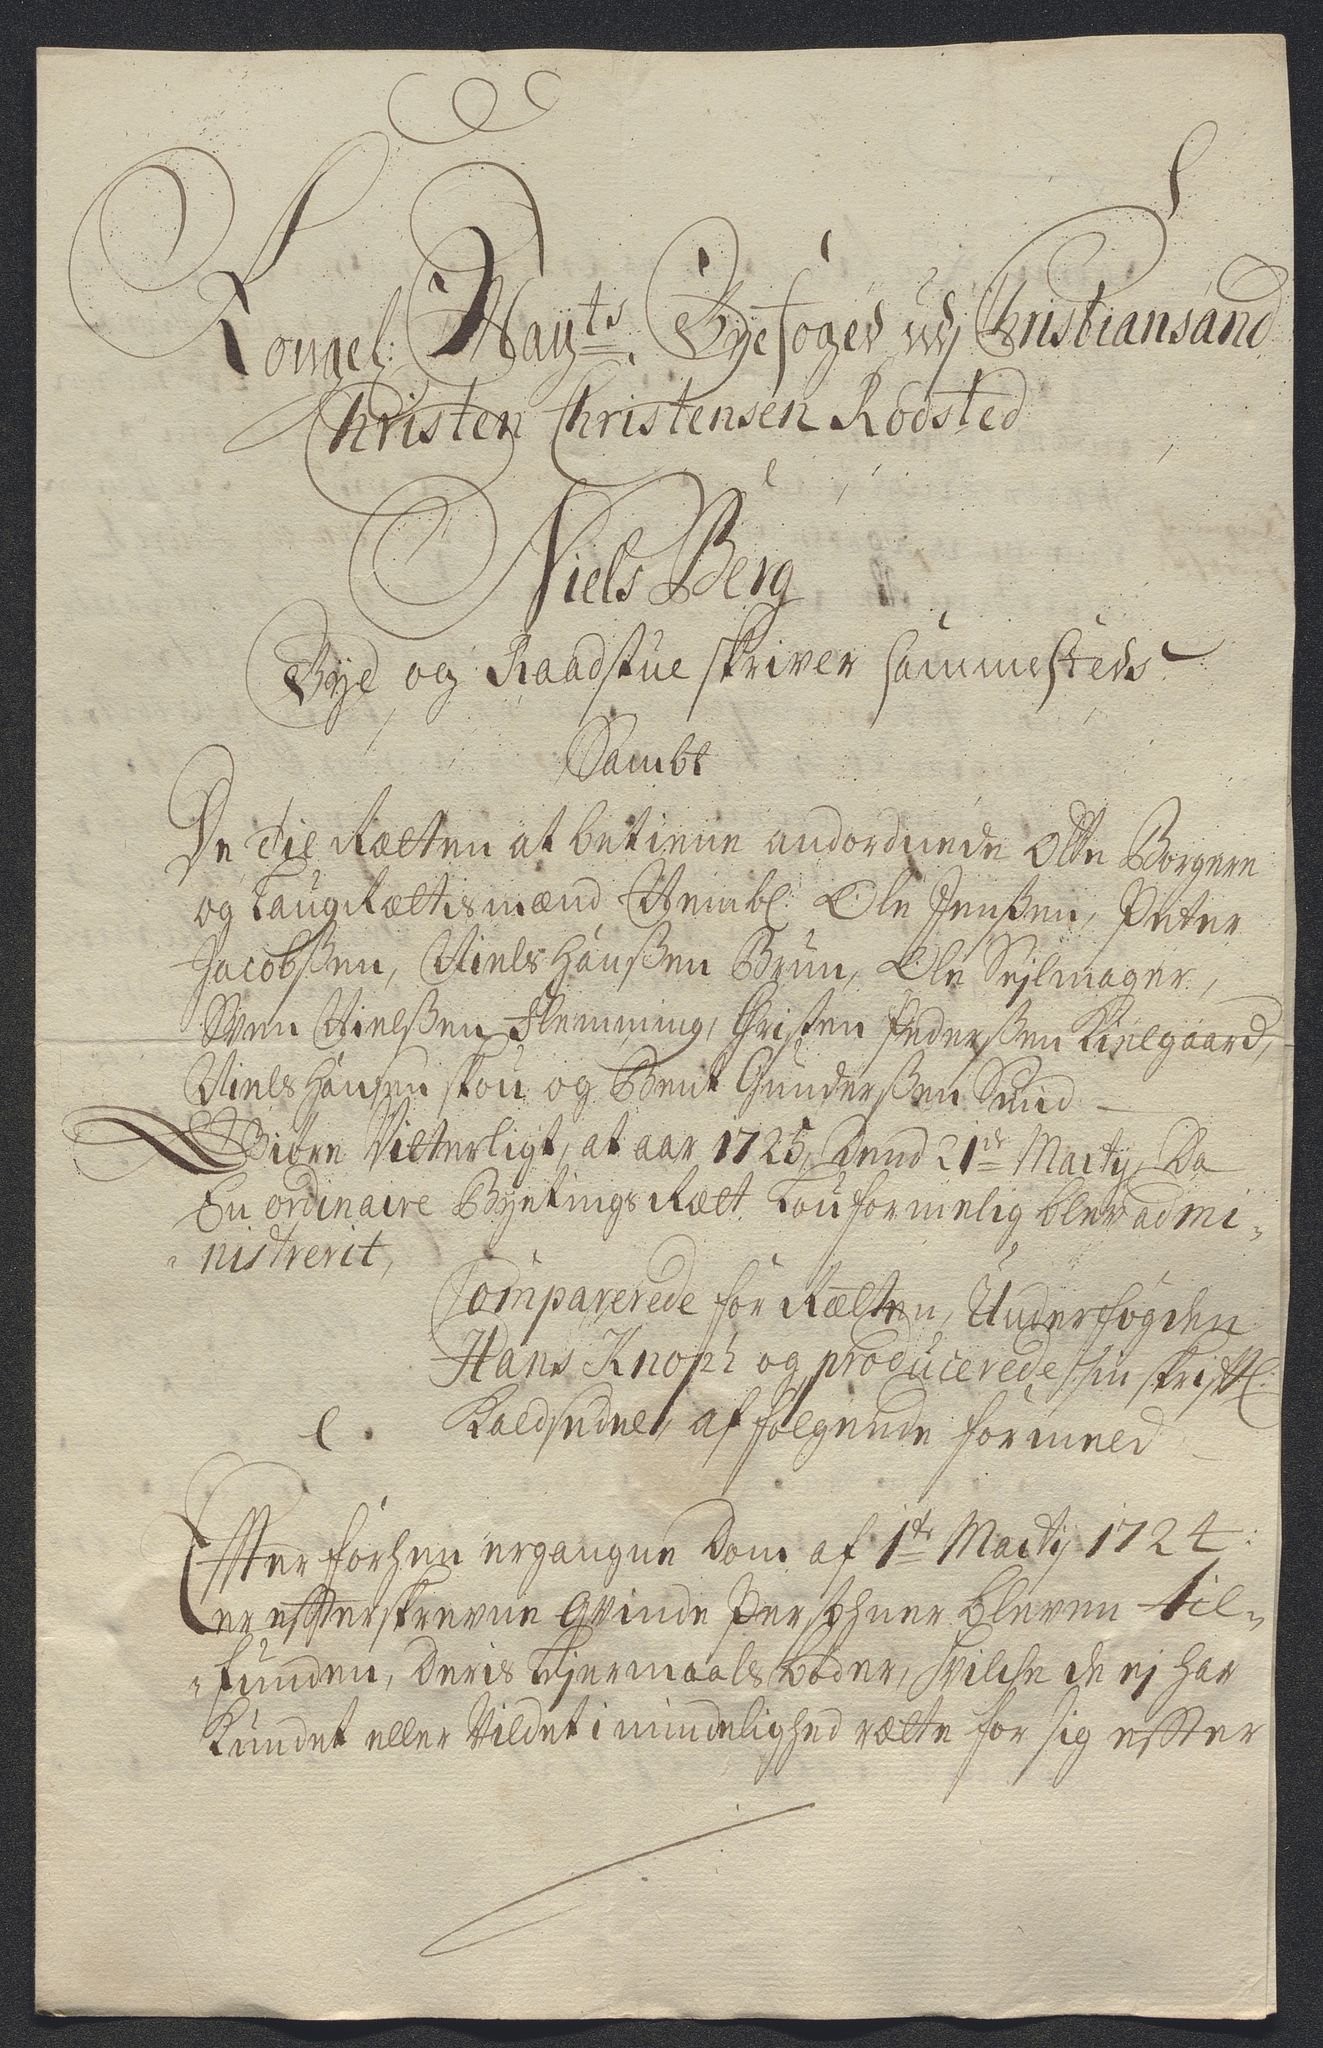 Kongel: Mayts Byefoged udj Christiansand
Christen Christensen Rodsted
Niels Berg
Bye og Raadstue skriver sammesteds
Sambt
De til Rætten at betiene andordnede Otte Borgere
og LaugRættismænd Nembl: Ole Jenßen, Peter
Jacobßen, Niels Hanßen Brun, Ole Sejlmager,
Sven Nielßen Flemming, Christen Pederßen Kielgaard,
Niels Hansen skou og Bent Gunderßen Smid
Giøre Vitterligt, at aar 1725, Dend 21de Martij, Da
En ordinaire Byetings Rætt Louformelig blev admi-
nistrerit,
Comparerede for Rætten, Underfogden
Hans Knoph og producerede sin skriftl:
Kaldsedel, af følgende formeld
Effter forhen ergangne Dom af 1te Martij 1724:
er effterskrevne Qvinde Persohner bleven til-
funden, Deris Lejermaals bøder, hvilche de ej har
Kundet eller Vildet i mindelighed rætte for sig effter